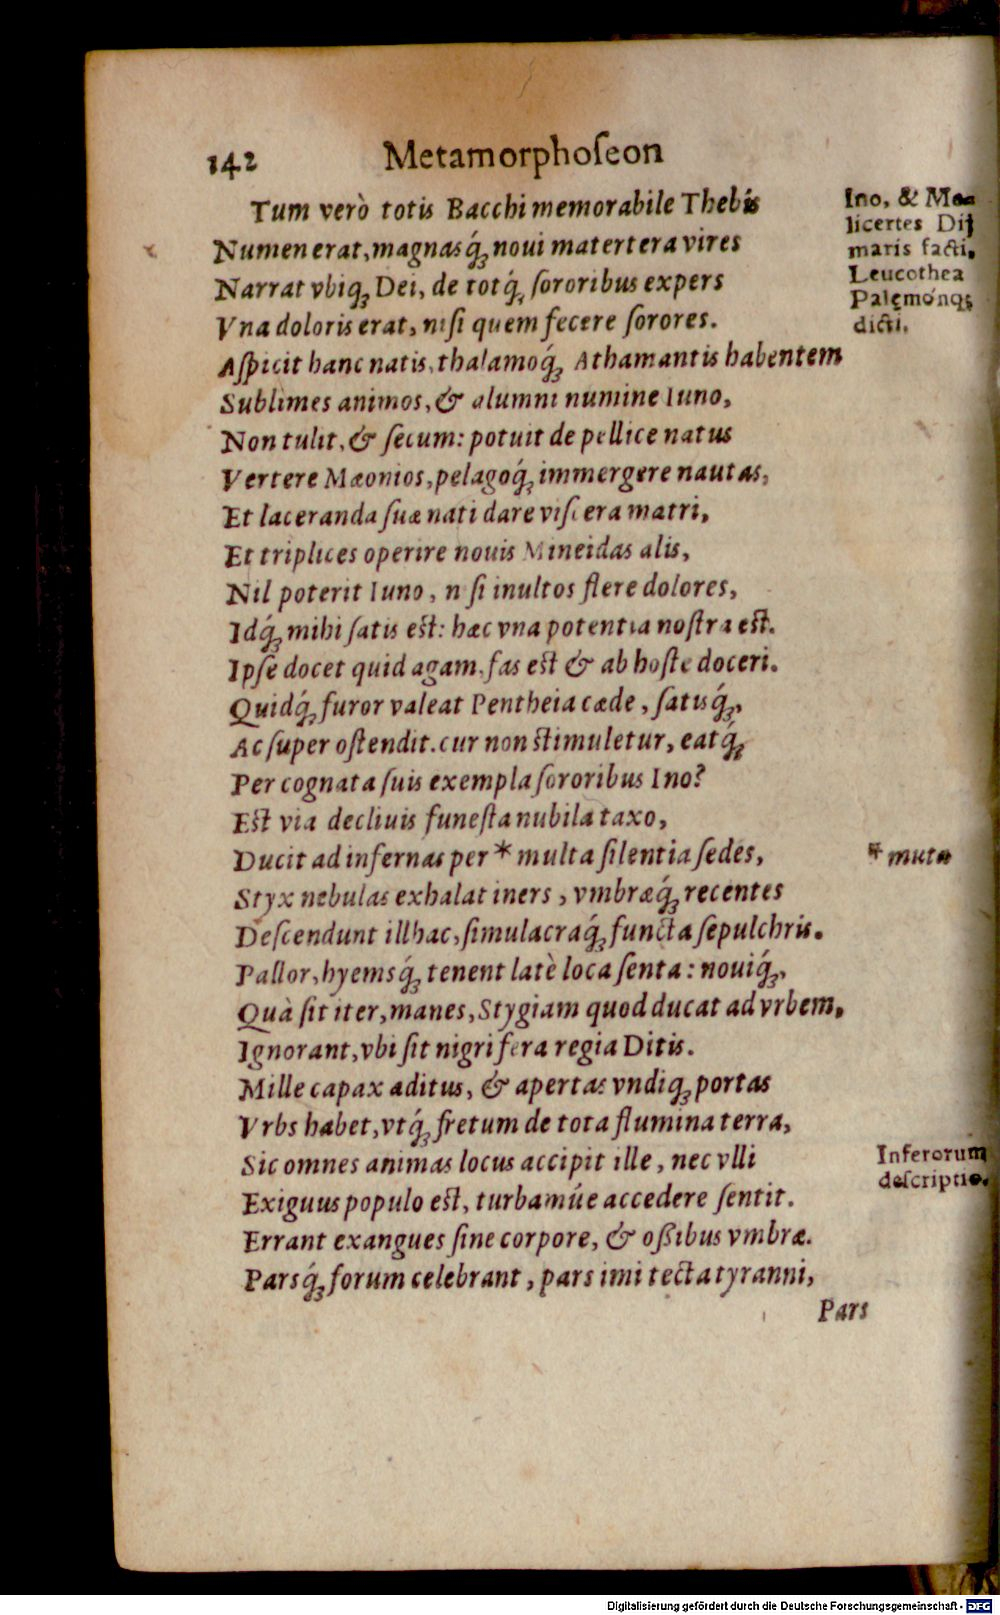 142 Metamorphoſeon
Tum verò totis Bacchi memorabile Thebis
Numen erat, magnasq́ꝫ noui matertera vires
Narrat vbiqꝫ Dei, de totq́ꝫ ſororibus expers
Vna doloris erat, niſi quem fecere ſorores.
Aſpicit hanc natis, thalamoq́ꝫ Athamantis habentem
Sublimes animos, & alumni numine Iuno,
Non tulit, & ſecum: potuit de pellice natus
Vertere Mæonios, pelagoq́ꝫ immergere nautas,
Et laceranda ſuæ nati dare viſcera matri,
Et triplices operire nouis Mineidas alis,
Nil poterit Iuno, n ſi inultos flere dolores,
Idq́ꝫ mihi ſatis eſt: hæc vna potentia noſtra eſt.
Ipſe docet quid agam, fas eſt & ab hoſte doceri.
Quidq́ꝫ furor valeat Pentheia cæde, ſatisq́ꝫ,
Ac ſuper oſtendit. cur non ſtimuletur, eatq́ꝫ
Per cognata ſuis exempla ſororibus Ino?
Eſt via decliuis funeſta nubila taxo,
Ducit ad infernas per * multa ſilentia ſedes,
Styx nebulas exhalat iners, vmbræq́ꝫ recentes
Deſcendunt illhac, ſimulacraq́ꝫ functa ſepulchris.
Pallor, hyemsq́ꝫ tenent latè loca ſenta: nouiq́ꝫ,
Quà ſit iter, manes, Stygiam quod ducat ad vrbem,
Ignorant, vbi ſit nigri fera regia Ditis.
Mille capax aditus, & apertas vndiqꝫ portas
Vrbs habet, vtq́ꝫ fretum de tota flumina terra,
Sic omnes animas locus accipit ille, nec vlli
Exiguus populo eſt, turbamúe accedere ſentit.
Errant exangues ſine corpore, & oſſibus vmbræ.
Parsq́ꝫ forum celebrant, pars imi tecta tyranni,
Pars
Ino, & Me-
licertes Dij
maris facti,
Leucothea
Palęmónqꝫ
dicti.
* muta
Inferorum
deſcriptio.
Digitalisierung gefördert durch die Deutsche Forschungsgemeinschaft - DFG